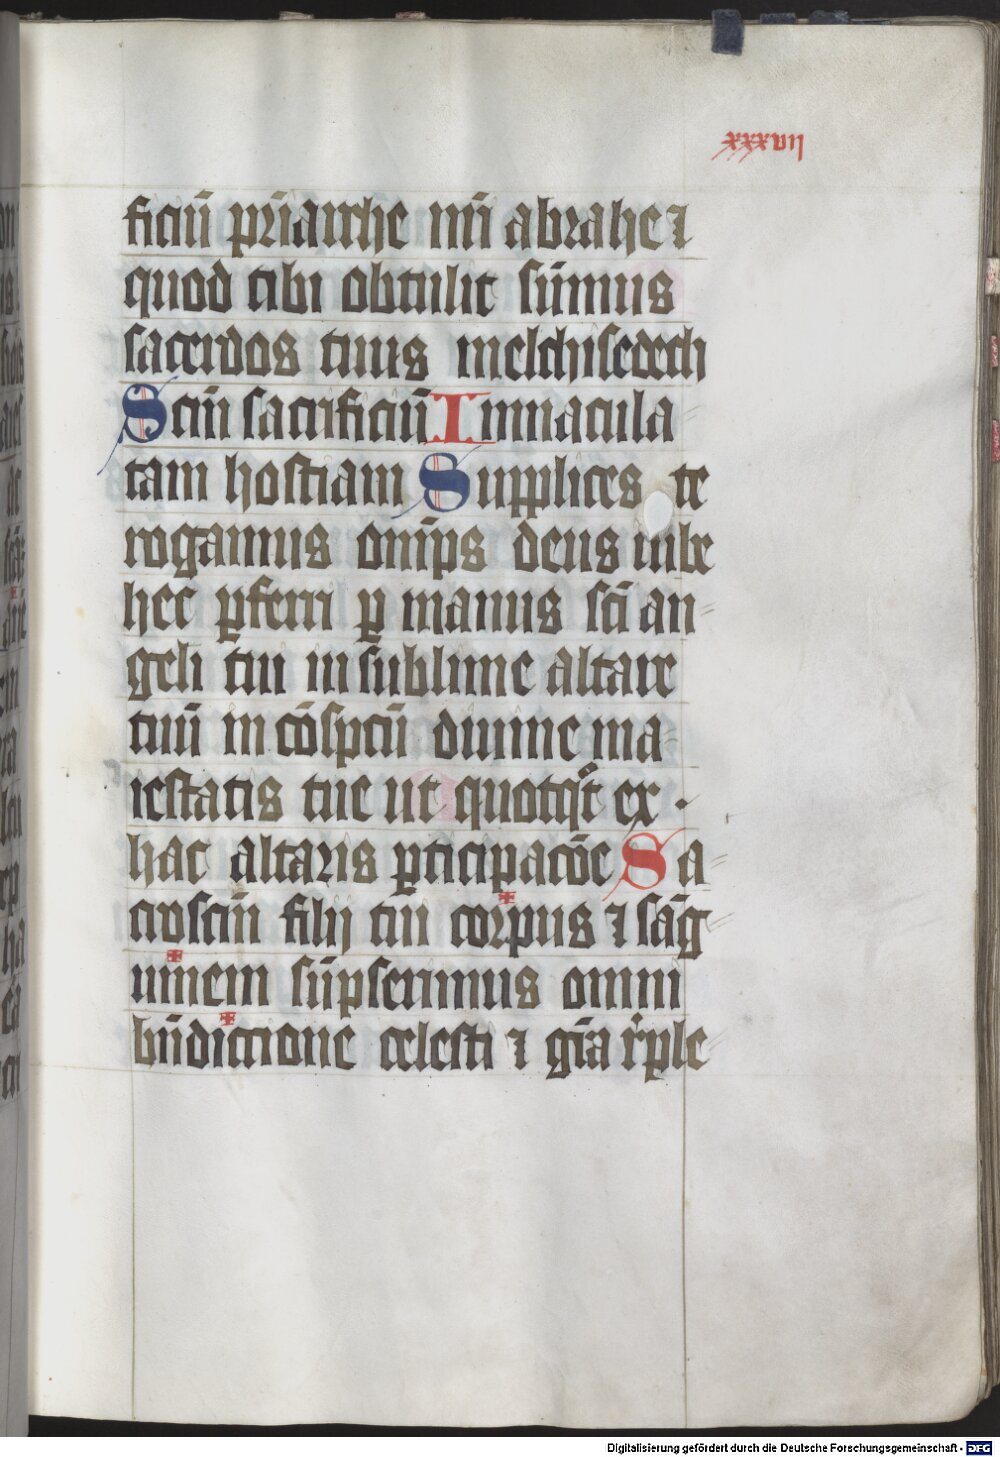 xxxvii
ficiū pri̅arche nr̄i abrahe ⁊
quod tibi obtulit sūmus
sacerdos tuus melchisedech
Scm̄ sacrificiū Inmacula
tam hostiam Supplices te
rogamus om̄ips deus iube
hec ꝑferri ꝑ manus sc̄i an-
geli tui in sublime altare
tuū in cōspctū diuine ma-
iestatis tue ut quotqͦt ex
hac altaris ꝑticipacōe Sa
crosctm̄ filij tui corpus ⁊ sāg
uinem sūpserimus omni
bn̄diccione celesti ⁊ gr̄a reple
Digitalisierung gefördert durch die Deutsche Forschungsgemeinschaft - DFG